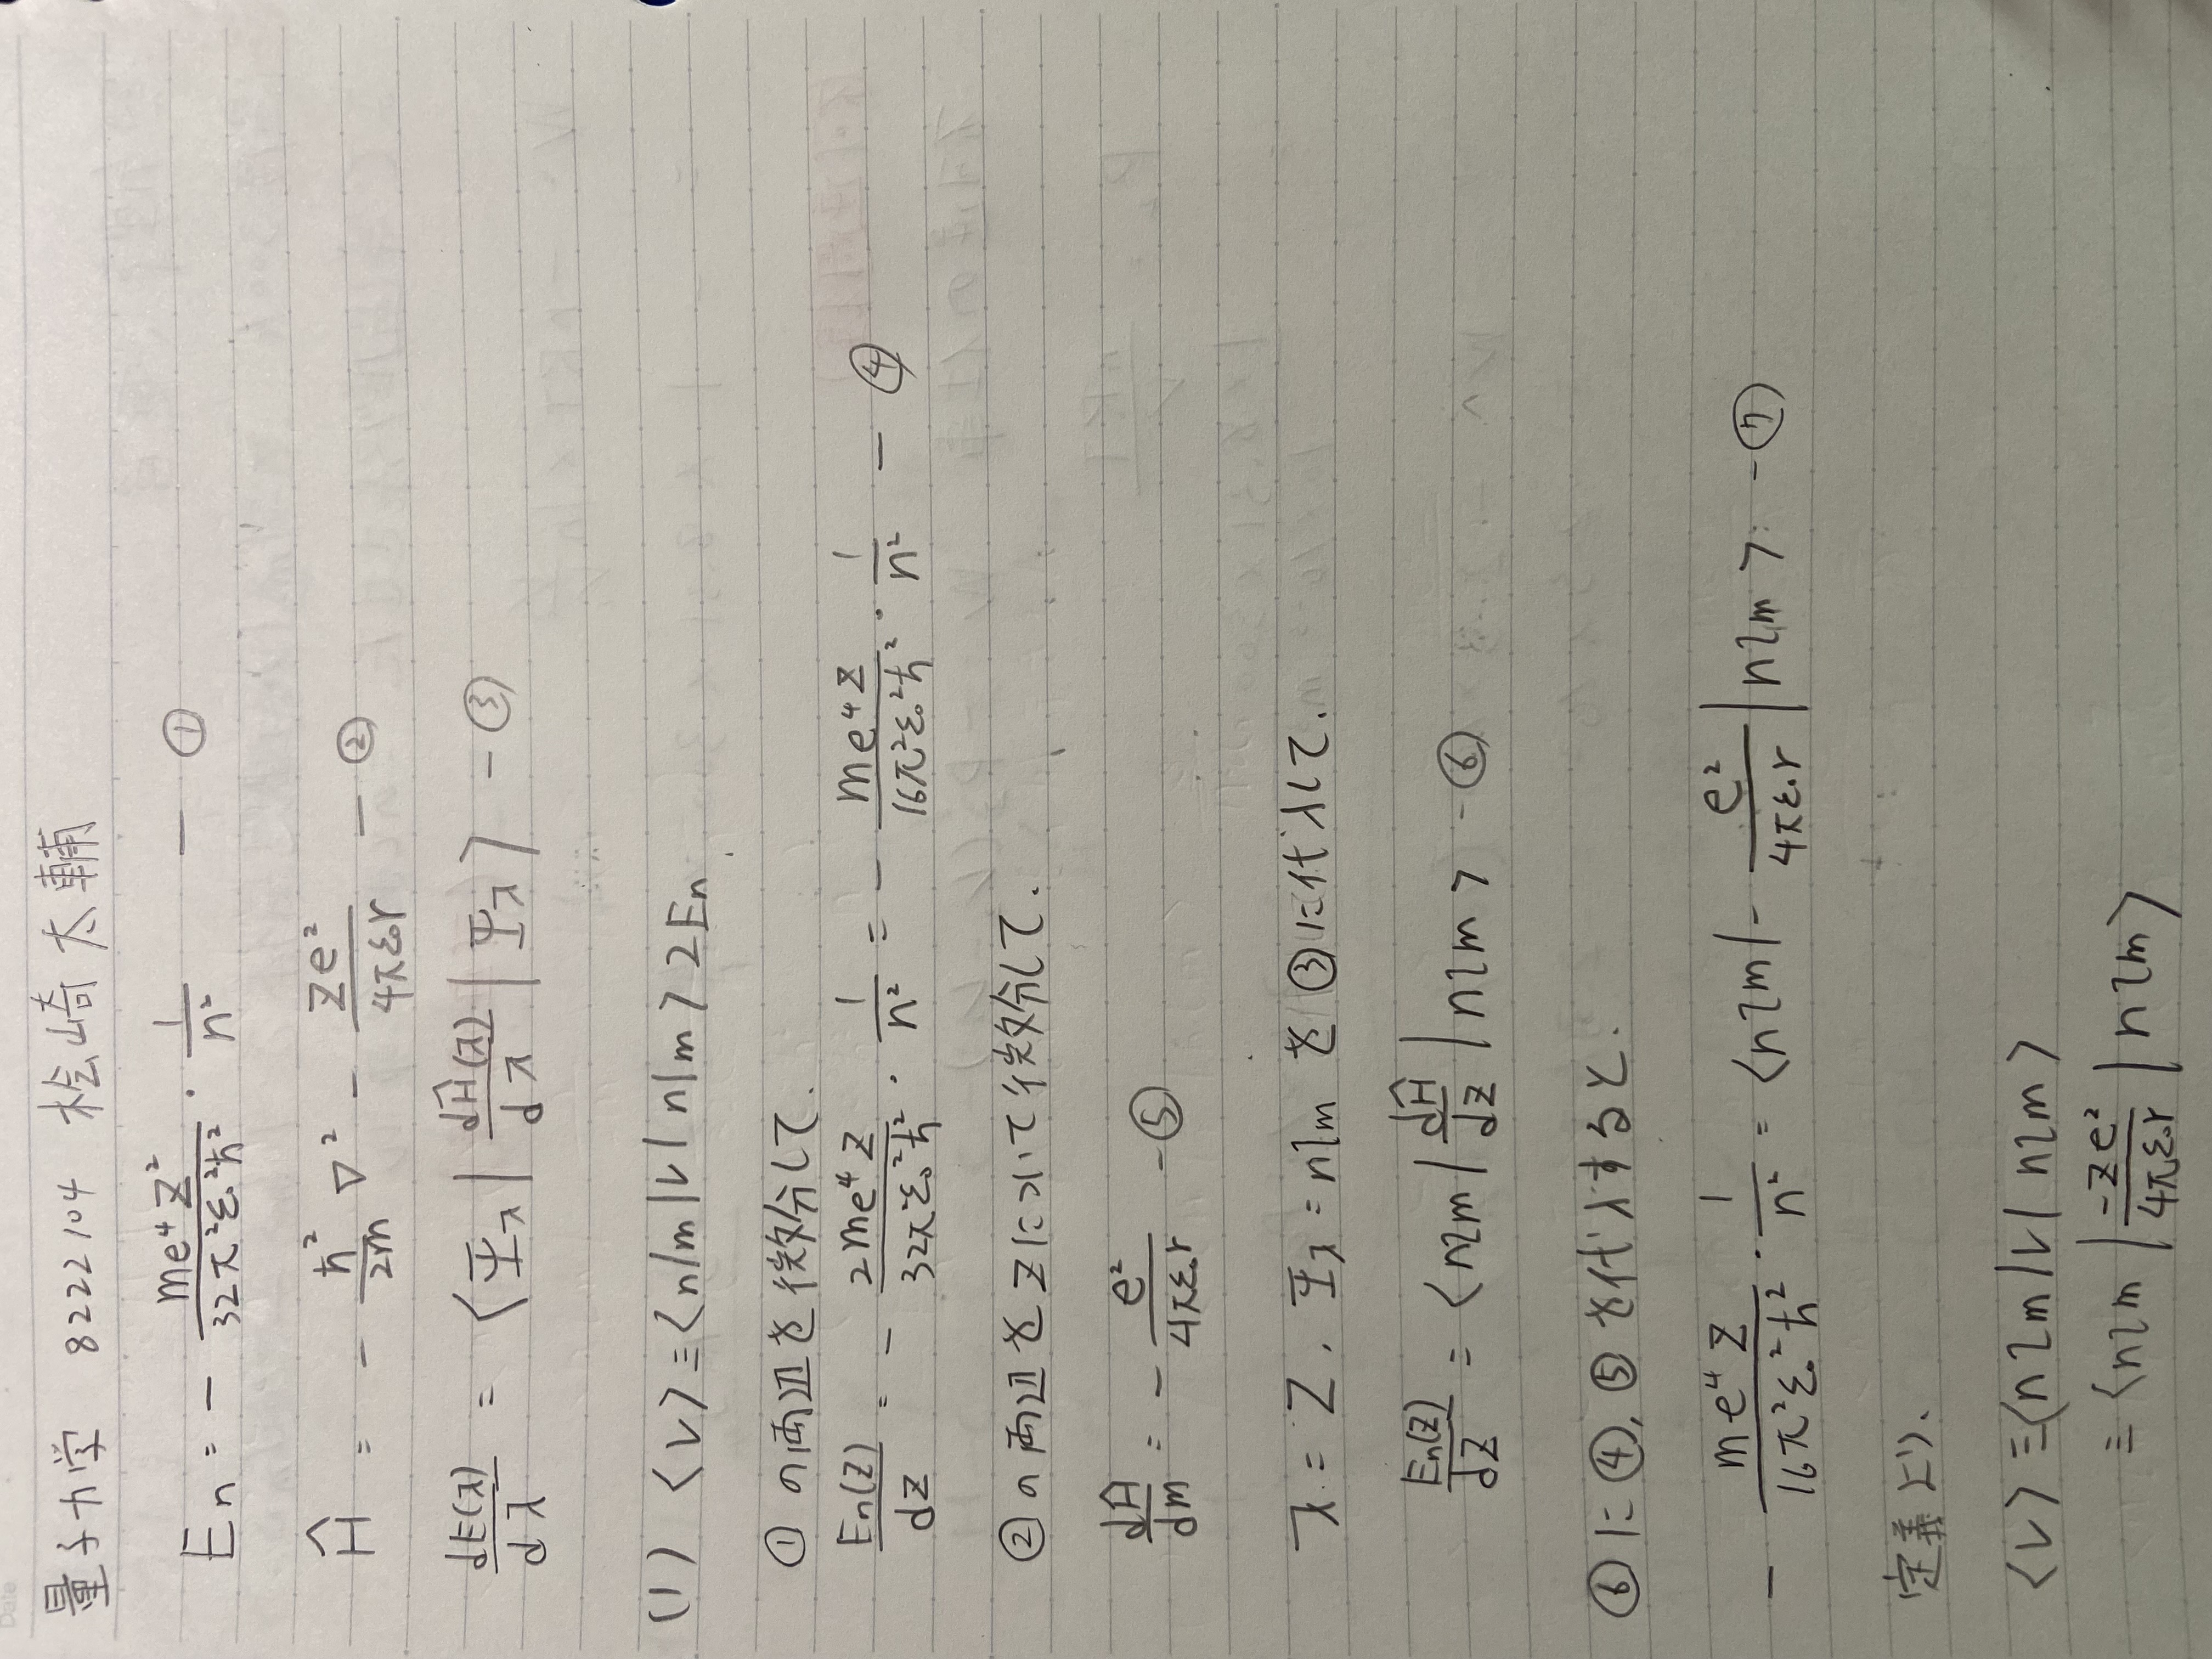 Date
量子力学 8222104 桧崎太輔
En = - me⁴Z²/32π²ε₀²ħ² · 1/n² - ①
Ĥ = - ħ²/2m ∇² - Ze²/4πε₀r - ②
dE(λ)/dλ = 〈Ψλ| dĤ(λ)/dλ |Ψλ〉 - ③
(1) 〈V〉≡〈nlm|V|nlm〉2En
①の両辺を微分して.
En(Z)/dZ = - 2me⁴Z/32π²ε₀²ħ² · 1/n² = - me⁴Z/16π²ε₀²ħ² · 1/n² - ④
②の両辺をZについて微分して.
dĤ/dm = - e²/4πε₀r - ⑤
λ = Z, Ψλ = nlm を③に代入して.
En(Z)/dZ = 〈nlm| dĤ/dZ |nlm〉 - ⑥
⑥に④,⑤を代入すると.
- me⁴Z/16π²ε₀²ħ² · 1/n² = 〈nlm| - e²/4πε₀r |nlm〉 - ⑦
定義より、
〈V〉≡〈nlm|V|nlm〉
≡〈nlm| -Ze²/4πε₀r |nlm〉